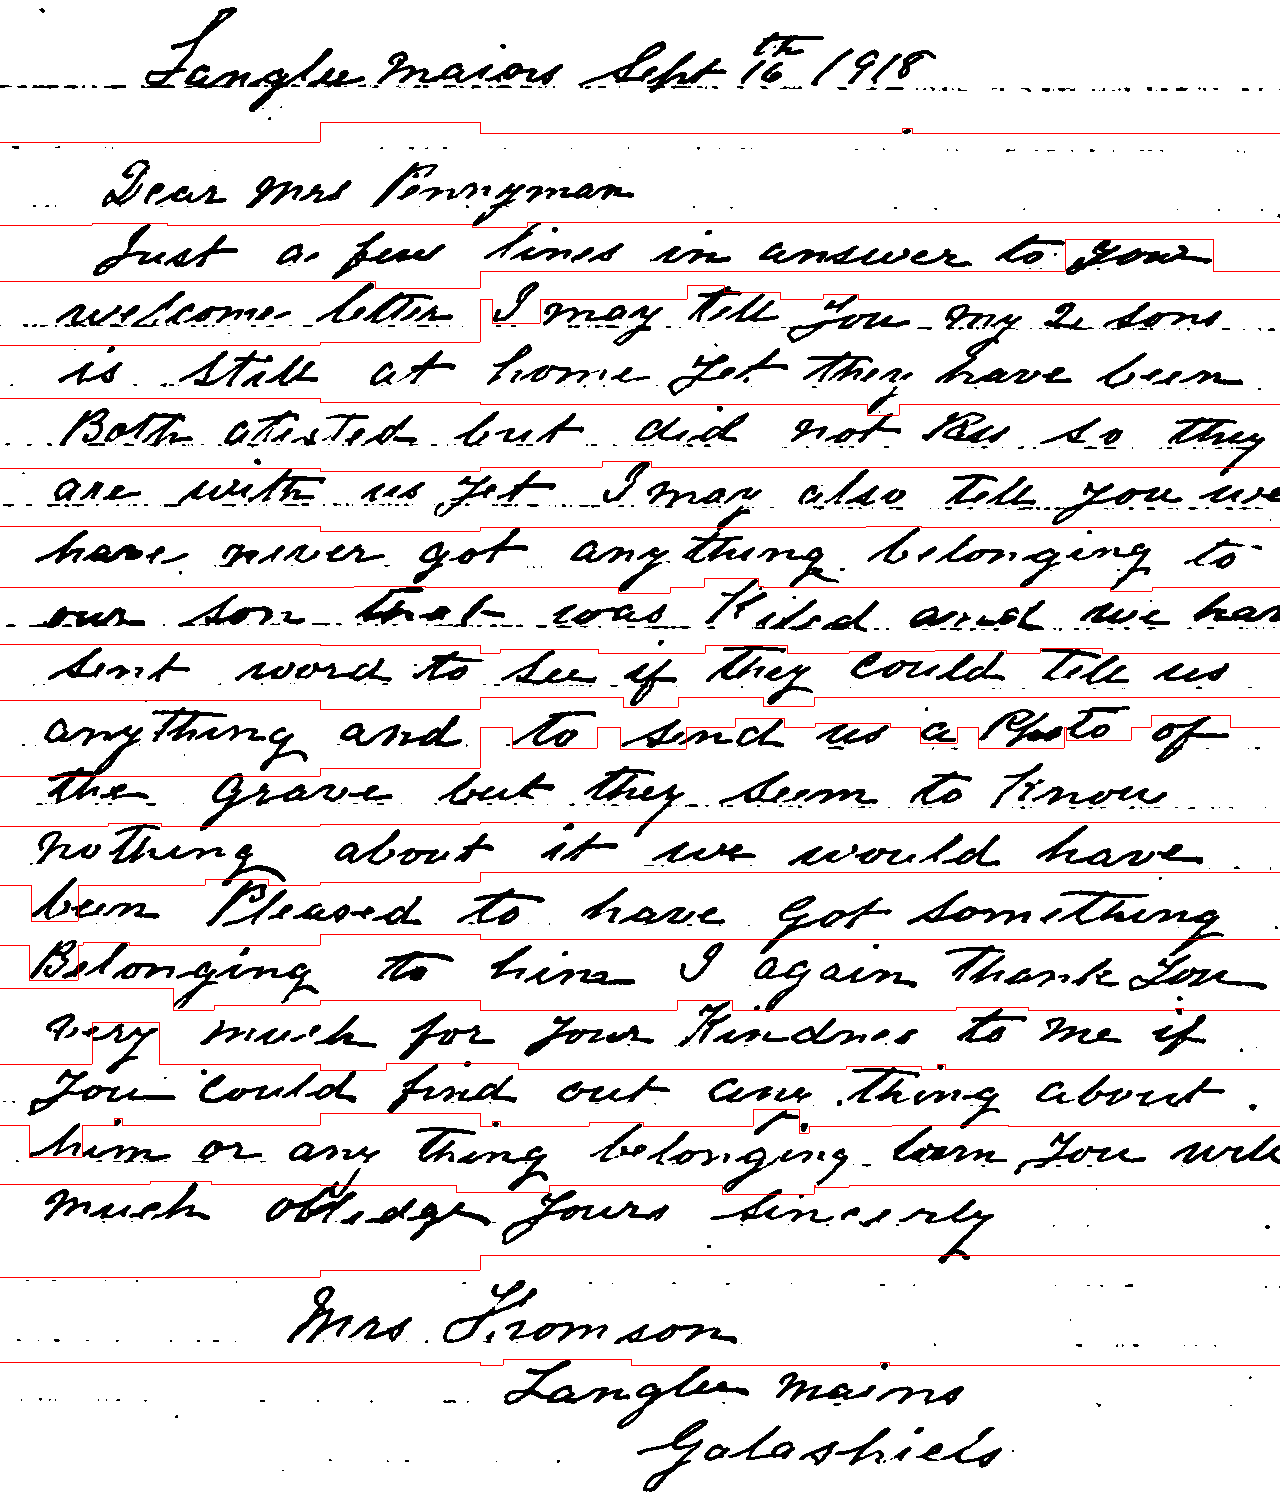 Langlee Maiors Sept 16th 1918
Dear Mrs Pennyman
Just a few lines in answer to your
welcome letter I may tell you my 2 sons
is still at home yet they have been
Both atested but did not Pass so they
are with us yet I may also tell you we
have never got anything belonging to
our son that was Killed and we have
sent word to see if they could tell us
anything and to send us a Photo of
the grave but they seem to Know
nothing about it we would have
been Pleased to have got something
Belonging to him I again thank you
very much for your Kindnes to me if
you could find out any thing about
him or any thing belonging him you will
much obledge yours sincerly
Mrs Thomson
Langlee Mains
Galashiels